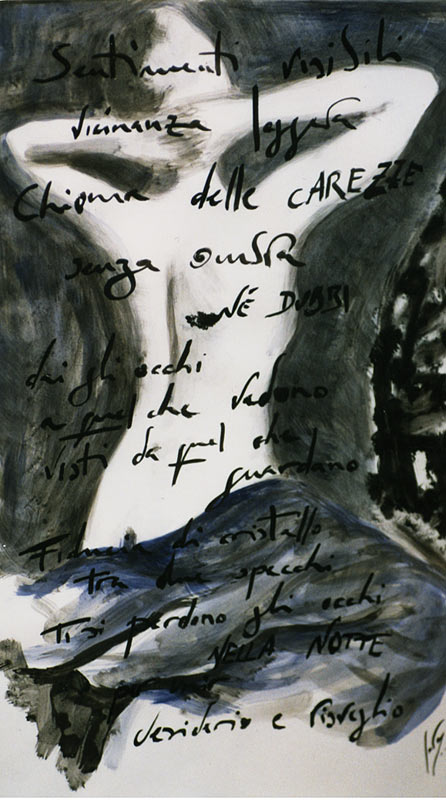 Sentimenti visibili
vicinanza leggera
Chioma delle CAREZZE
senza ombra
NÉ DUBBI
dai gli occhi
a quel che vedono
visti da quel che
guardano
Fiducia di cristallo
tra due specchi
Ti si perdono gli occhi
NELLA NOTTE
per
desiderio e risveglio